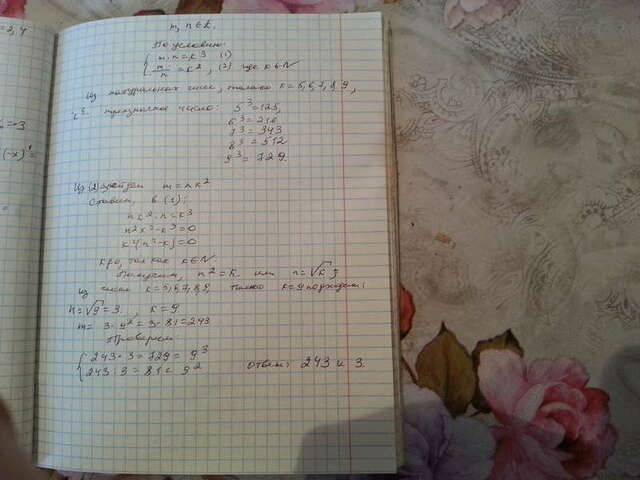 = 3, 4
m, n ∈ Z.
По условию:
{ m · n = k³ (1)
m/n = k², (2) где k ∈ N
Из натуральных чисел, только k = 5, 6, 7, 8, 9,
k³ трехзначное число: 5³ = 125,
6³ = 216
7³ = 343
8³ = 512
9³ = 729.
=> 3
(-x)' =
Из (2) m = nk²
Ставим, в (1):
nk² · n = k³
n²k² - k³ = 0
k²(n² - k) = 0
k ≠ 0, так как k ∈ N.
n² = k. или n = √k,
Из чисел k = 5, 6, 7, 8, 9 только k = 9 подходит:
n = √9 = 3. , k = 9
m = 3 · 9² = 3 · 81 = 243
Проверим
{ 243 · 3 = 729 = 9³
243 : 3 = 81 = 9²
Ответ: 243 и 3.